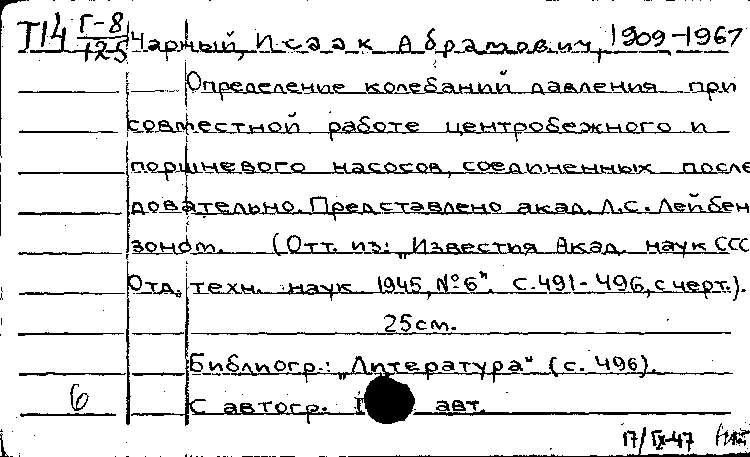 Т14 Г-8/125 Чарный, Исаак Абрамович, 1909-1967
Определение колебаний давления при
совместной работе центробежного и
поршневого насосов, соединенных после
довательно. Представлено акад. Л.С. Лейбен
зоном. (Отт. из: "Известия Акад. наук ССС
Отд. техн. наук 1945, №6". с. 491-496, с черт.).
25см.
Библиогр.: "Литература" (с. 496).
6 С автогр. авт.
17/IX-47